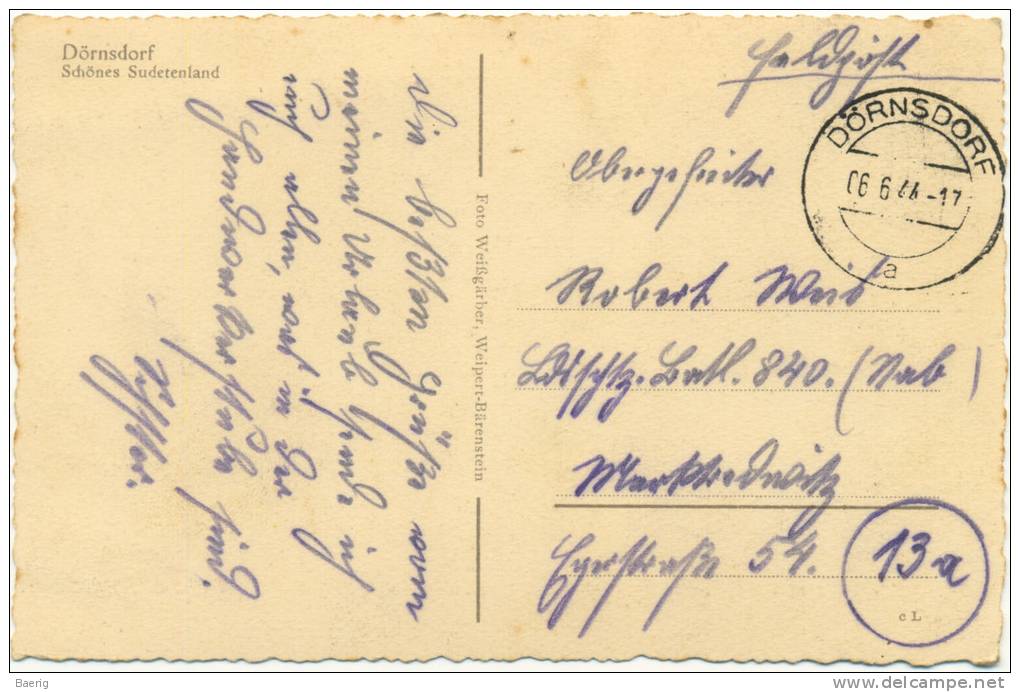 Dörnsdorf
Schönes Sudetenland
Die besten Grüße vom
meinem Urlaub sende ich
auch allen, und in der
sind.
Foto Weißgärber, Weipert-Bärenstein
Feldpost
DÖRNSDORF
06.6.44-17
a
Obergefreiter
Robert Weis
Ldsschtz. Batl. 840. (Nab)
Marktredwitz
Egerstraße 54.
13a
c L
Baerig
delcampe.net